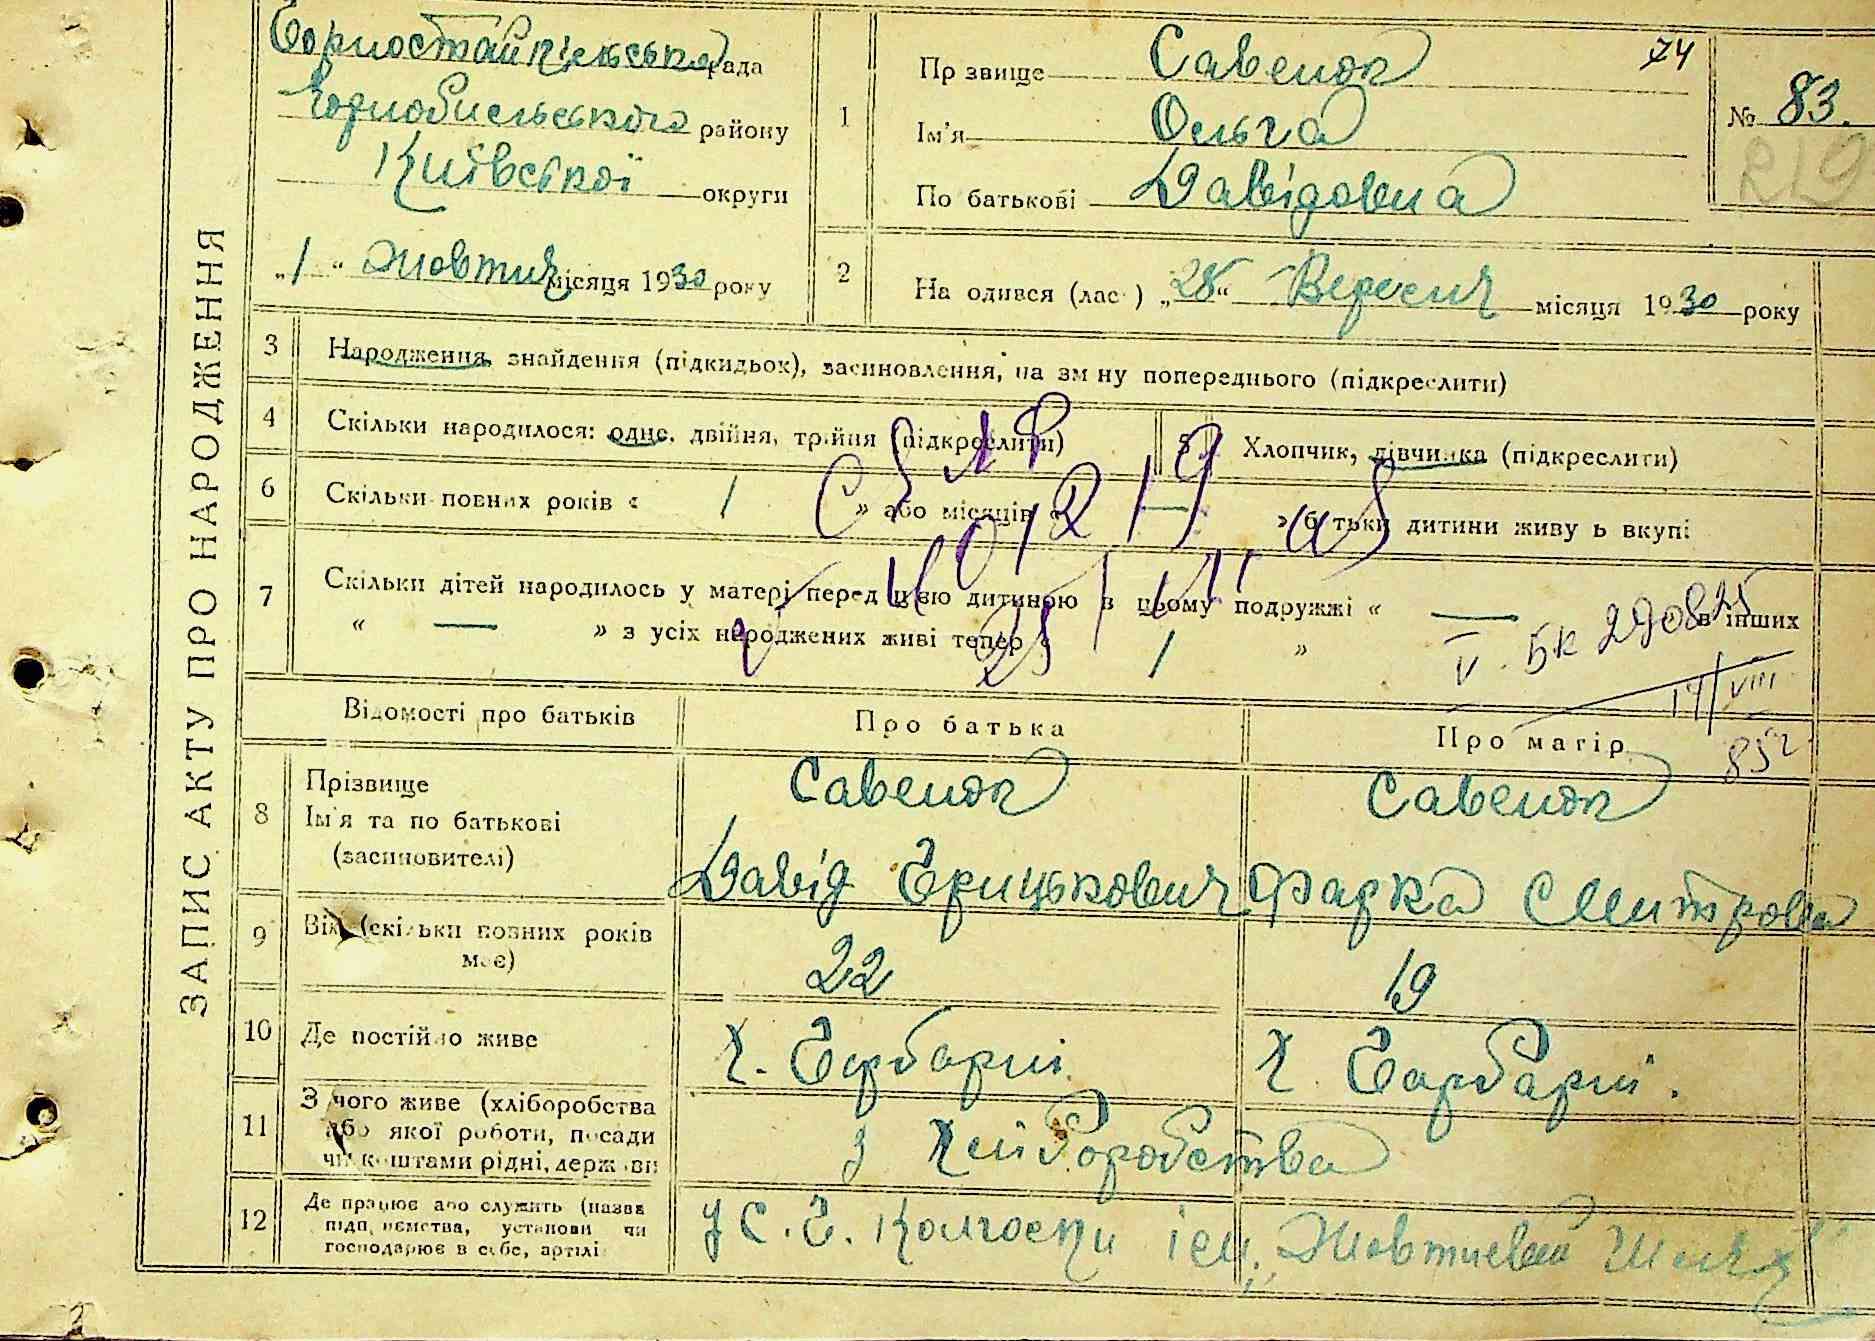 ЗАПИС АКТУ ПРО НАРОДЖЕННЯ
Горностайпільська рада
Чорнобильського району
Київської округи
„1“ Жовтня місяця 1930 року
1
Пр звище Савенок
Ім'я Ольга
По батькові Давідовна
74
№ 83.
219
2
На одився (лас ) „28“ Вересня місяця 1930 року
3
Народження, знайдення (підкидьок), засиновлення, на зм ну попереднього (підкреслити)
4
Скільки народилося: одне, двійня, трійня (підкреслити)
5
Хлопчик, дівчинка (підкреслити)
6
Скільки повних років « 1 » або місяців « — » б тьки дитини живу ь вкупі
7
Скільки дітей народилось у матері перед цією дитиною в цьому подружжі « — в інших
« — » з усіх народжених живі тепер « 1 »
V. 5к
17/VIII
85г
Відомості про батьків
Про батька
Про матір
8
Прізвище
Ім'я та по батькові
(засиновителі)
Савенок
Давід Грицькович
Савенок
9
Вік (скільки повних років
має)
22
19
10
Де постійно живе
Х. Гарбарні
Х. Гарбарні.
11
З чого живе (хліборобства
або якої роботи, посади
чи коштами рідні, держави
з Хліборобства
12
Де працює або служить (назва
підп иємства, установи чи
господарює в себе, артілі
у С. Г. Колгоспи ім. Жовтневий Шлях